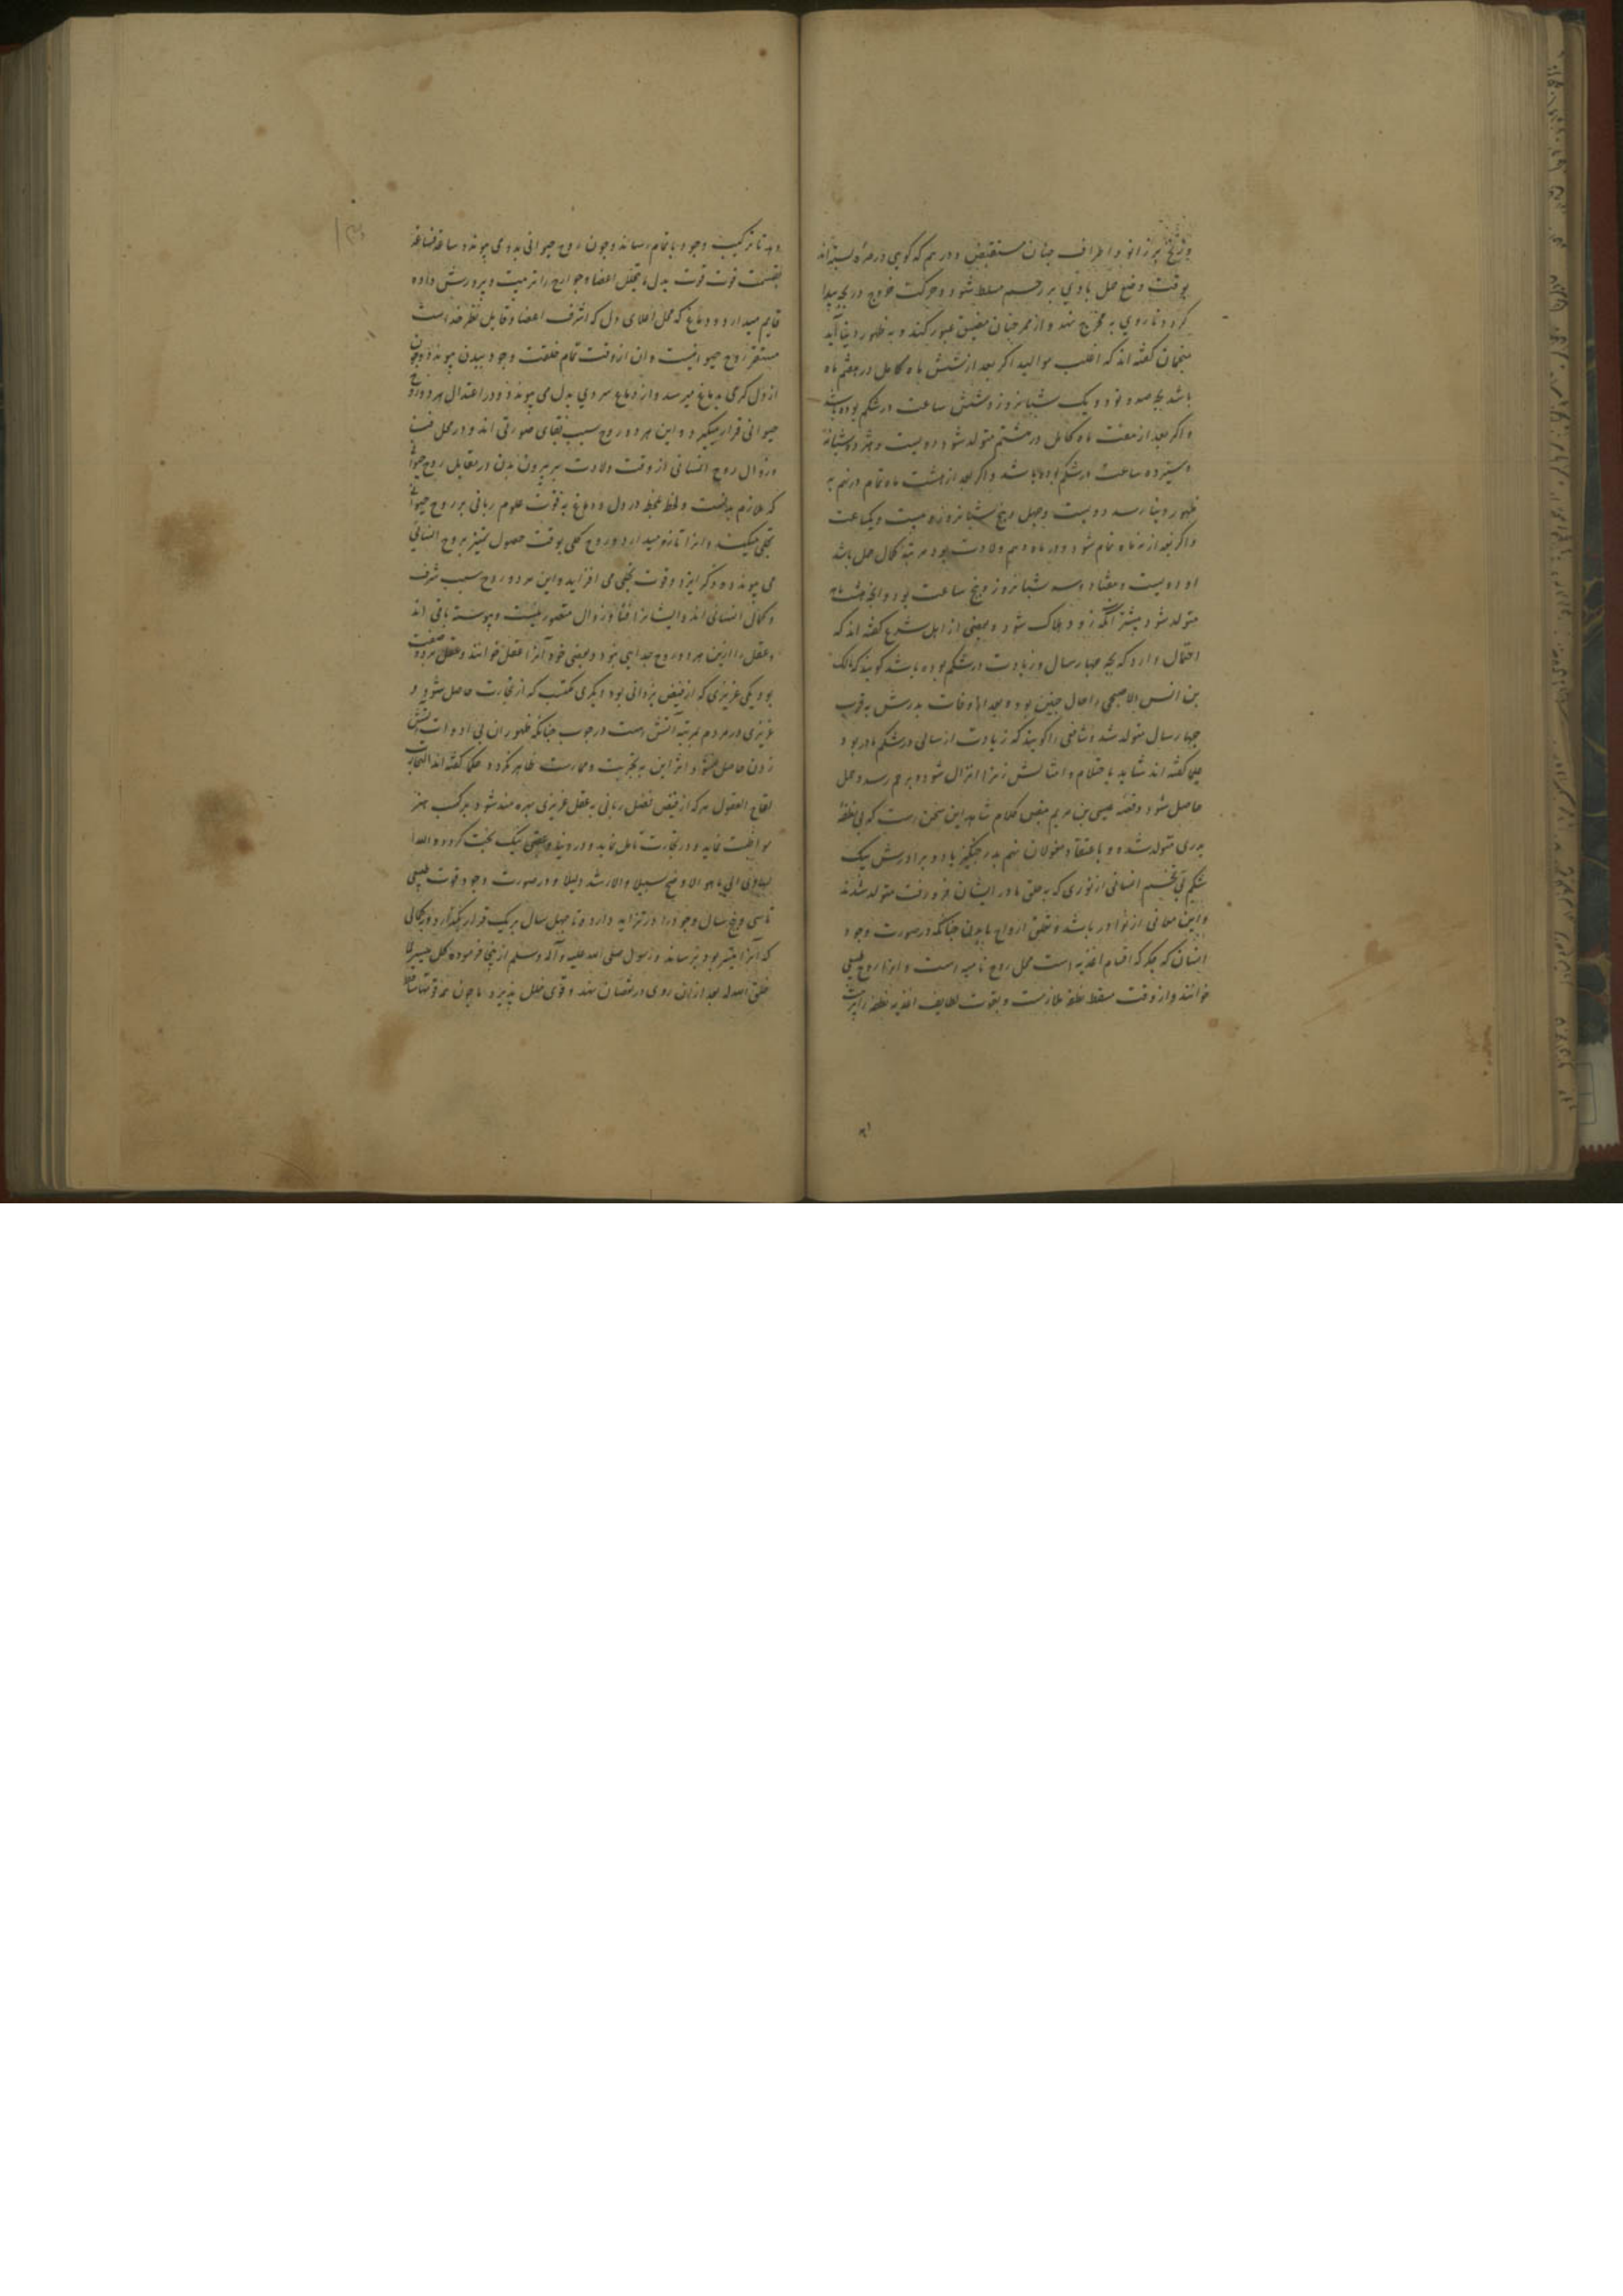 و زنخ بر زانو و اطراف چنان منقبض و درهم که گویی در صره بسته اند
بوقت وضع حمل بادی بر رحم مسلط شود و حرکت خروج در بچه پیدا
گردد تا روی به مخرج نهد و از ممر چنان مضیق عبور کند و به ظهور دنیا آید
منجمان گفته اند که اغلب موالید اگر بعد از شش ماه کامل در هفتم ماه
باشد بچه صد و نود و یک شبانروز و شش ساعت در شکم بوده باشد
و اگر بعد از هفت ماه کامل در هشتم متولد شود دویست و هژده شبانه
و سیزده ساعت در شکم بوده باشد و اگر بعد از هشت ماه تمام در نهم به
ظهور دنیا رسد دویست و چهل و پنج شبانروز و بیست و یکساعت
و اگر بعد از نه ماه تمام شود و در ماه دهم ولادت بود مرتبه کمال حمل باشد
او دویست و هفتاد و سه شبانروز و پنج ساعت بود و آنچه هشت ماهه
متولد شود بیشتر آنکه زود هلاک شود و بعضی از اهل شرع گفته اند که
احتمال دارد که بچه چهار سال و زیادت در شکم بوده باشد گویند که مالک
بن انس الاصبحی را حال چنین بود و بعد از وفات پدرش به قرب
چهار سال متولد شد و شافعی را گویند که زیادت از سالی در شکم مادر بود
حکما گفته اند شاید باحتلام و امثالش زنرا انزال شود و برحم رسد و حمل
حاصل شود و قصه عیسی بن مریم بنص کلام شاهد این سخن است که بی نطفه
پدری متولد شده و باعتقاد مغولان نهم پدر چنگیز با دو برادرش بیک
شکم بی تخم انسانی از نوری که به حلق مادر ایشان فرو رفت متولد شدند
و این معانی از نوادر باشد و تعلق ارواح بابدان چنانکه در صورت وجود
انسان که جگر که اقسام اغذیه است محل روح نامیه است و انرا روح طبیعی
خوانند و از وقت مسقط نطفه ملازمست و بقوت لطایف اغذیه نطفه را پرورش
دهد تا ترکیب وجود باتمام رساند و چون روح حیوانی بدو می پیوندد ساعة فساعة
بقسمت قوت قوت بدل ما یتحلل اعضا و جوارح را تربیت و پرورش داده
قایم میدارد و دماغ که محل اعلای دل که اشرف اعضا و قابل نظر خداست
مستقر روح حیوانیست و ان از وقت تمام خلقت وجود ببدن پیوندد و چون
از دل گرمی بدماغ میرسد و از دماغ سردی بدل می پیوندد و در اعتدال هر دو روح
حیوانی قرار میگیرد و این هر دو روح سبب بقای صورتی اند و در محل فنا
و زوال روح انسانی از وقت ولادت سر بیرون بدن در مقابل روح حیوانی
که ملازم بدنست و لحظ بلحظ در دل و دماغ به قوت علوم ربانی بر روح حیوانی
تجلی میکند و انرا تازه میدارد و روح کلی بوقت حصول تمییز بروح انسانی
می پیوندد و ذکر ایزد و قوت تجلی می افزاید و این هر دو روح سبب شرف
و کمال انسانی اند و ایشانرا فنا و زوال متصور نیست و پیوسته باقی اند
و عقل را ازین هر دو روح جدایی نبود و بعضی خود آنرا عقل خوانند و عقل بر دو صفت
بود یکی غریزی که از فیض یزدانی بود دیگری مکتسب که از تجارت حاصل شود و
غریزی در مردم بمرتبه آتش است در چوب چنانکه ظهور ان بی ادوات آتش
زدن حاصل نشود اثر این به تجربت و ممارست ظاهر نگردد حکما گفته اند التجارب
لقاح العقول هر که از فیض فضل ربانی به عقل غریزی بهره مند شود بر کسب هنر
مواظبت نماید و در تجارت تامل نماید و در دنیا و عقبی نیک بخت گردد و الله
الهادی الی ما هو الاوضح سبیلا و الارشد دلیلا و در صورت وجود قوت طبیعی
تا سی و پنج سال وجود را در تزاید دارد و تا چهل سال بر یک قرار بگذارد و بکمالی
که آنرا میسر بود برساند و رسول صلی الله علیه و آله و سلم ازینجا فرموده کل میسر لما
خلق الله له بعد از ان روی در نقصان نهد و قوی خلل پذیرد اما چون